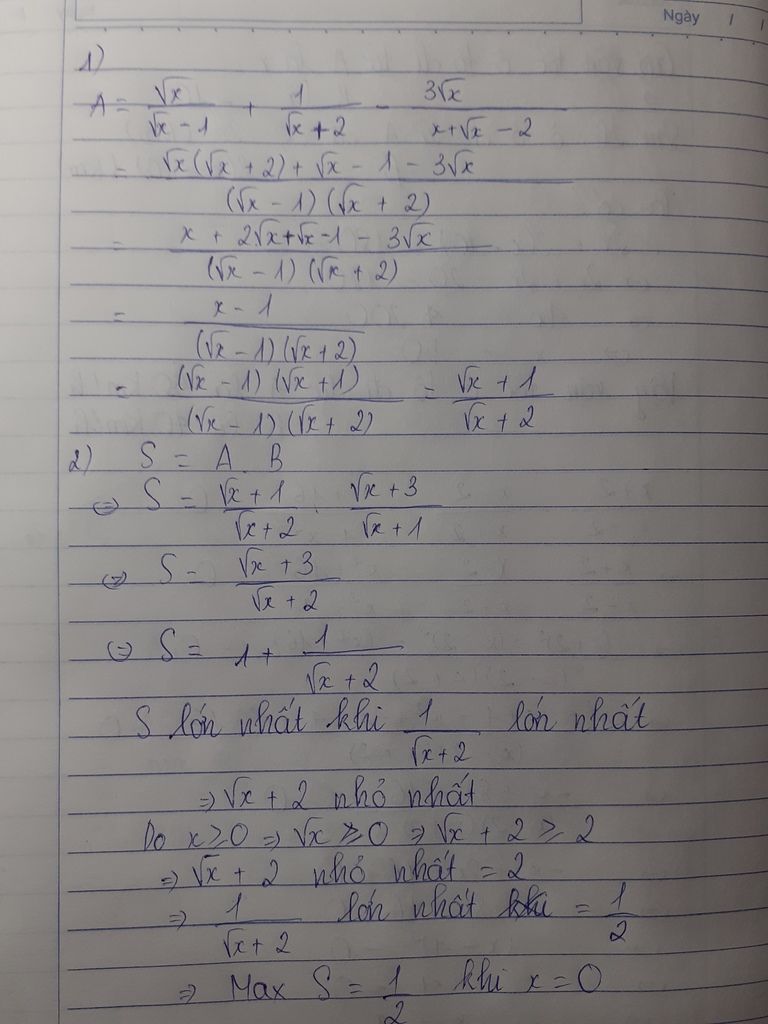 Ngày / /
1)
A = √x/(√x - 1) + 1/(√x + 2) - 3√x/(x + √x - 2)
= (√x(√x + 2) + √x - 1 - 3√x)/((√x - 1)(√x + 2))
= (x + 2√x + √x - 1 - 3√x)/((√x - 1)(√x + 2))
= (x - 1)/((√x - 1)(√x + 2))
= ((√x - 1)(√x + 1))/((√x - 1)(√x + 2)) = (√x + 1)/(√x + 2)
2) S = A . B
⇔ S = (√x + 1)/(√x + 2) . (√x + 3)/(√x + 1)
⇔ S = (√x + 3)/(√x + 2)
⇔ S = 1 + 1/(√x + 2)
S lớn nhất khi 1/(√x + 2) lớn nhất
⇒ √x + 2 nhỏ nhất
Do x ≥ 0 ⇒ √x ≥ 0 ⇒ √x + 2 ≥ 2
⇒ √x + 2 nhỏ nhất = 2
⇒ 1/(√x + 2) lớn nhất = 1/2
⇒ Max S = 1/2 khi x = 0